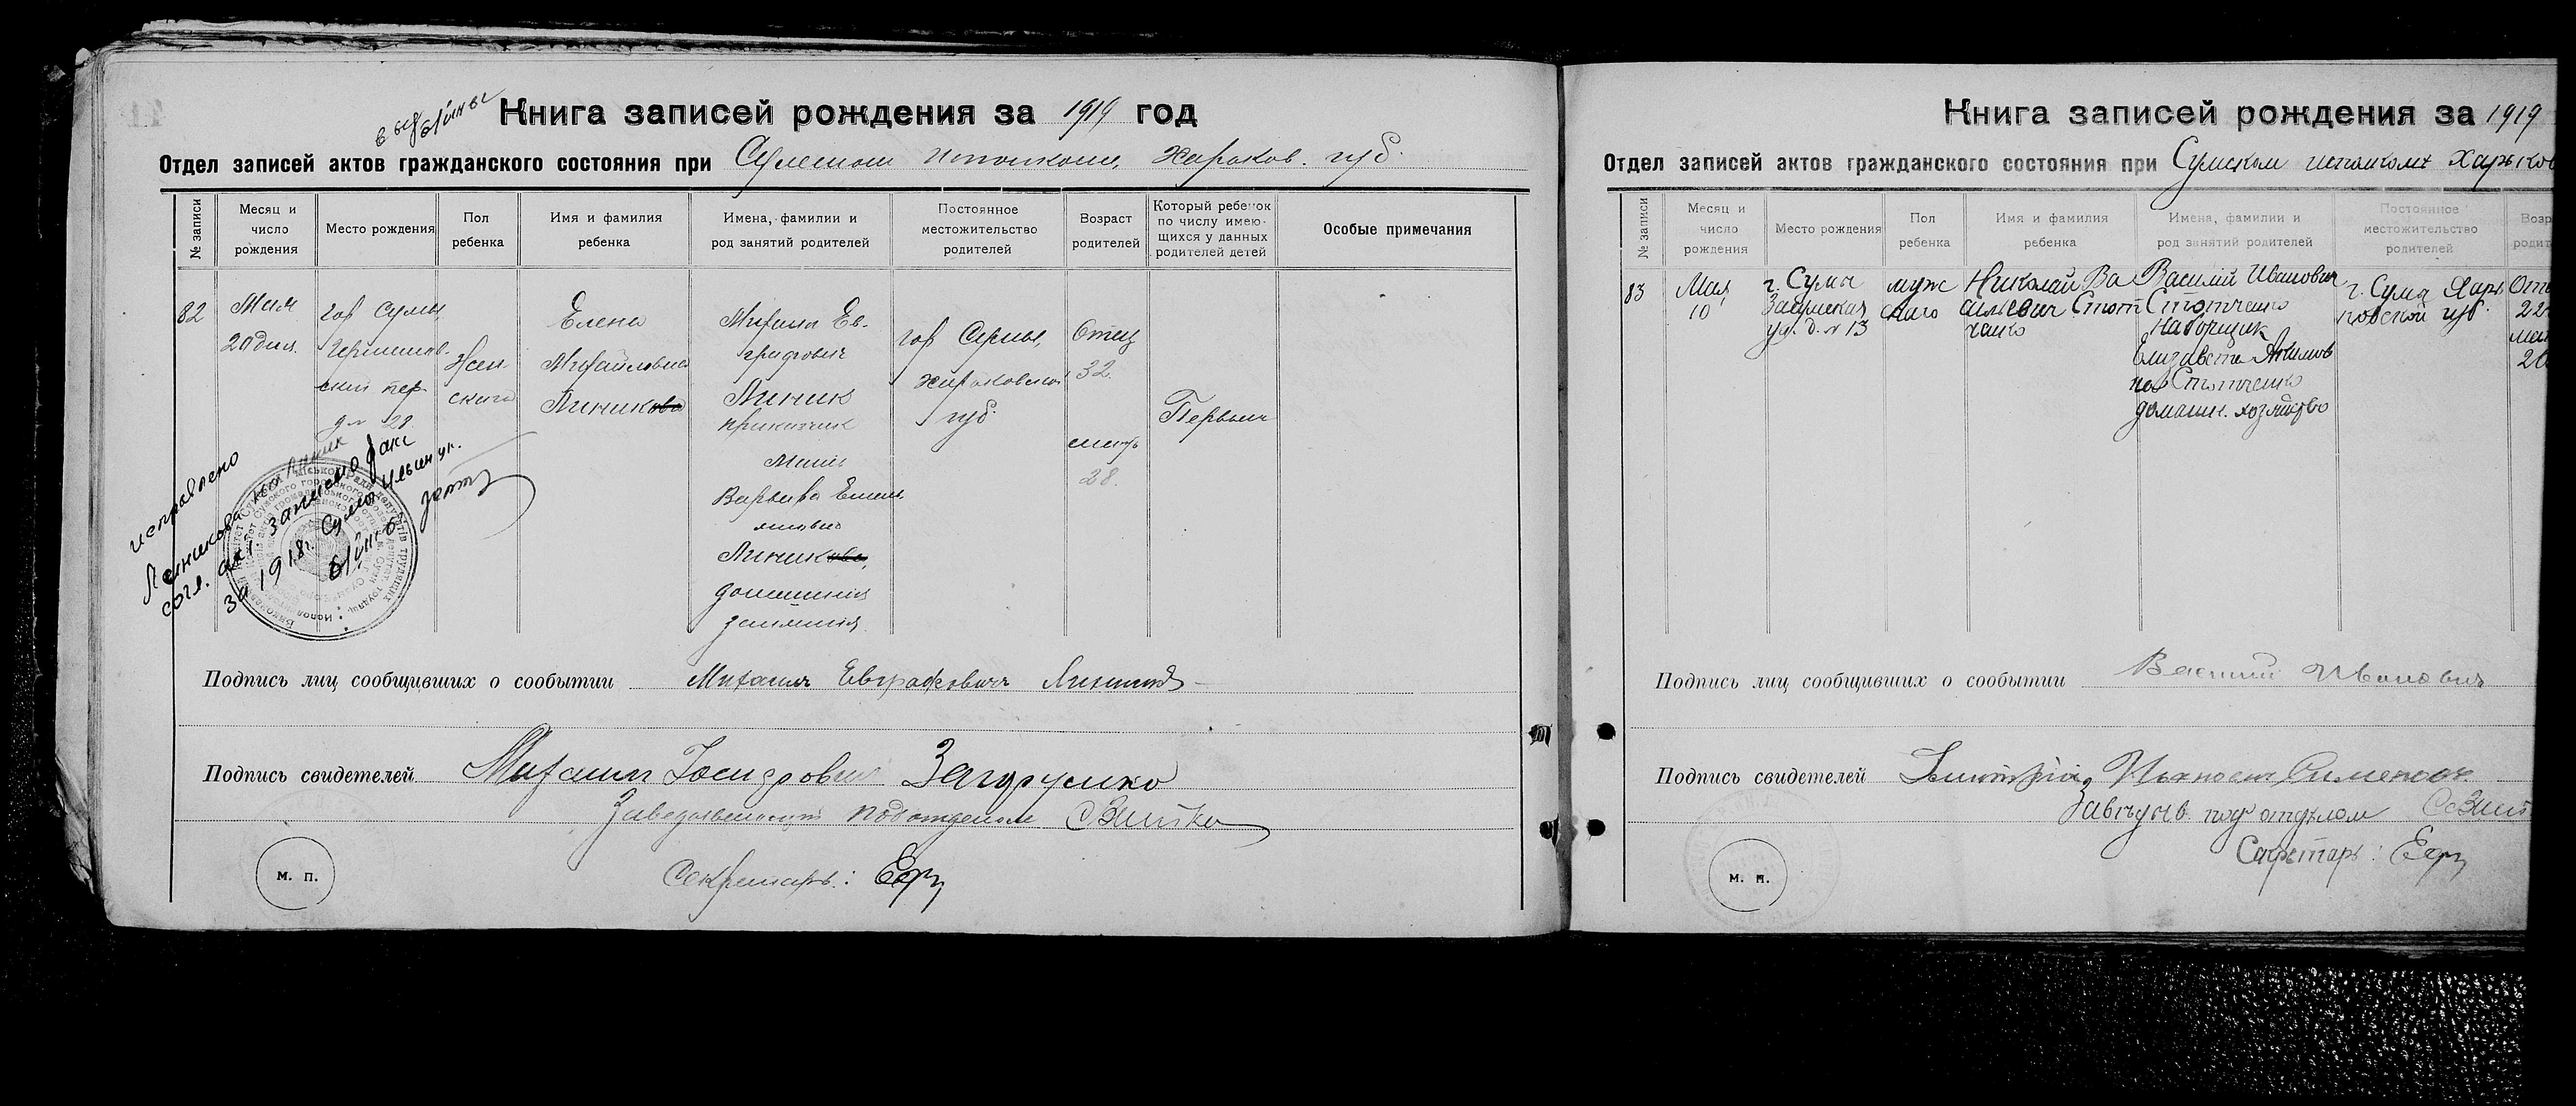 Книга записей рождения за 1919 год
Отдел записей актов гражданского состояния при Сумском исполкоме, Харьков. губ.
№ записи
Месяц и число рождения
Место рождения
Пол ребенка
Имя и фамилия ребенка
Имена, фамилии и род занятий родителей
Постоянное местожительство родителей
Возраст родителей
Который ребенок по числу имеющихся у данных родителей детей
Особые примечания
82
Мая
20 дня.
гор Сумы,
ский пер
д. № 28
Жен
ского
Елена
Михайловна
Линикова
Михаил Ев-
графович
Линик
приказчик
Мать
Варвара Емель
яновна
Линикова,
домашния
занятия
гор Сумы,
Харьковской
губ.
Отец
32.
мать
28.
Первый
исправлено
Линикова на Линик
согл. акт. записи о брак
за 1918 г. Сумы
Подпись лиц сообщивших о сообытии Михаил Евграфович Линик
Подпись свидетелей Михаил
Заведывающий подотделом
Секретарь:
м. п.
Книга записей рождения за 1919
Отдел записей актов гражданского состояния при Сумском исполкоме Харьков
№ записи
Месяц и число рождения
Место рождения
Пол ребенка
Имя и фамилия ребенка
Имена, фамилии и род занятий родителей
Постоянное местожительство родителей
Возр
родит
83
Мая
10
г. Сумы
Засумская
ул. д. № 13
муж
ского
Николай Ва
сильевич Стот
ченко
Василий Иванович
Стотченко
Наборщик
Елизавета Якимов
на Стотченко
домашн. хозяйство
г. Сумы Харь
ковской губ.
Оте
22
мат
20
Подпись лиц сообщивших о сообытии Василий Иванович
Подпись свидетелей
Завѣдыв. под отдѣлом
Секретарь:
м. п.